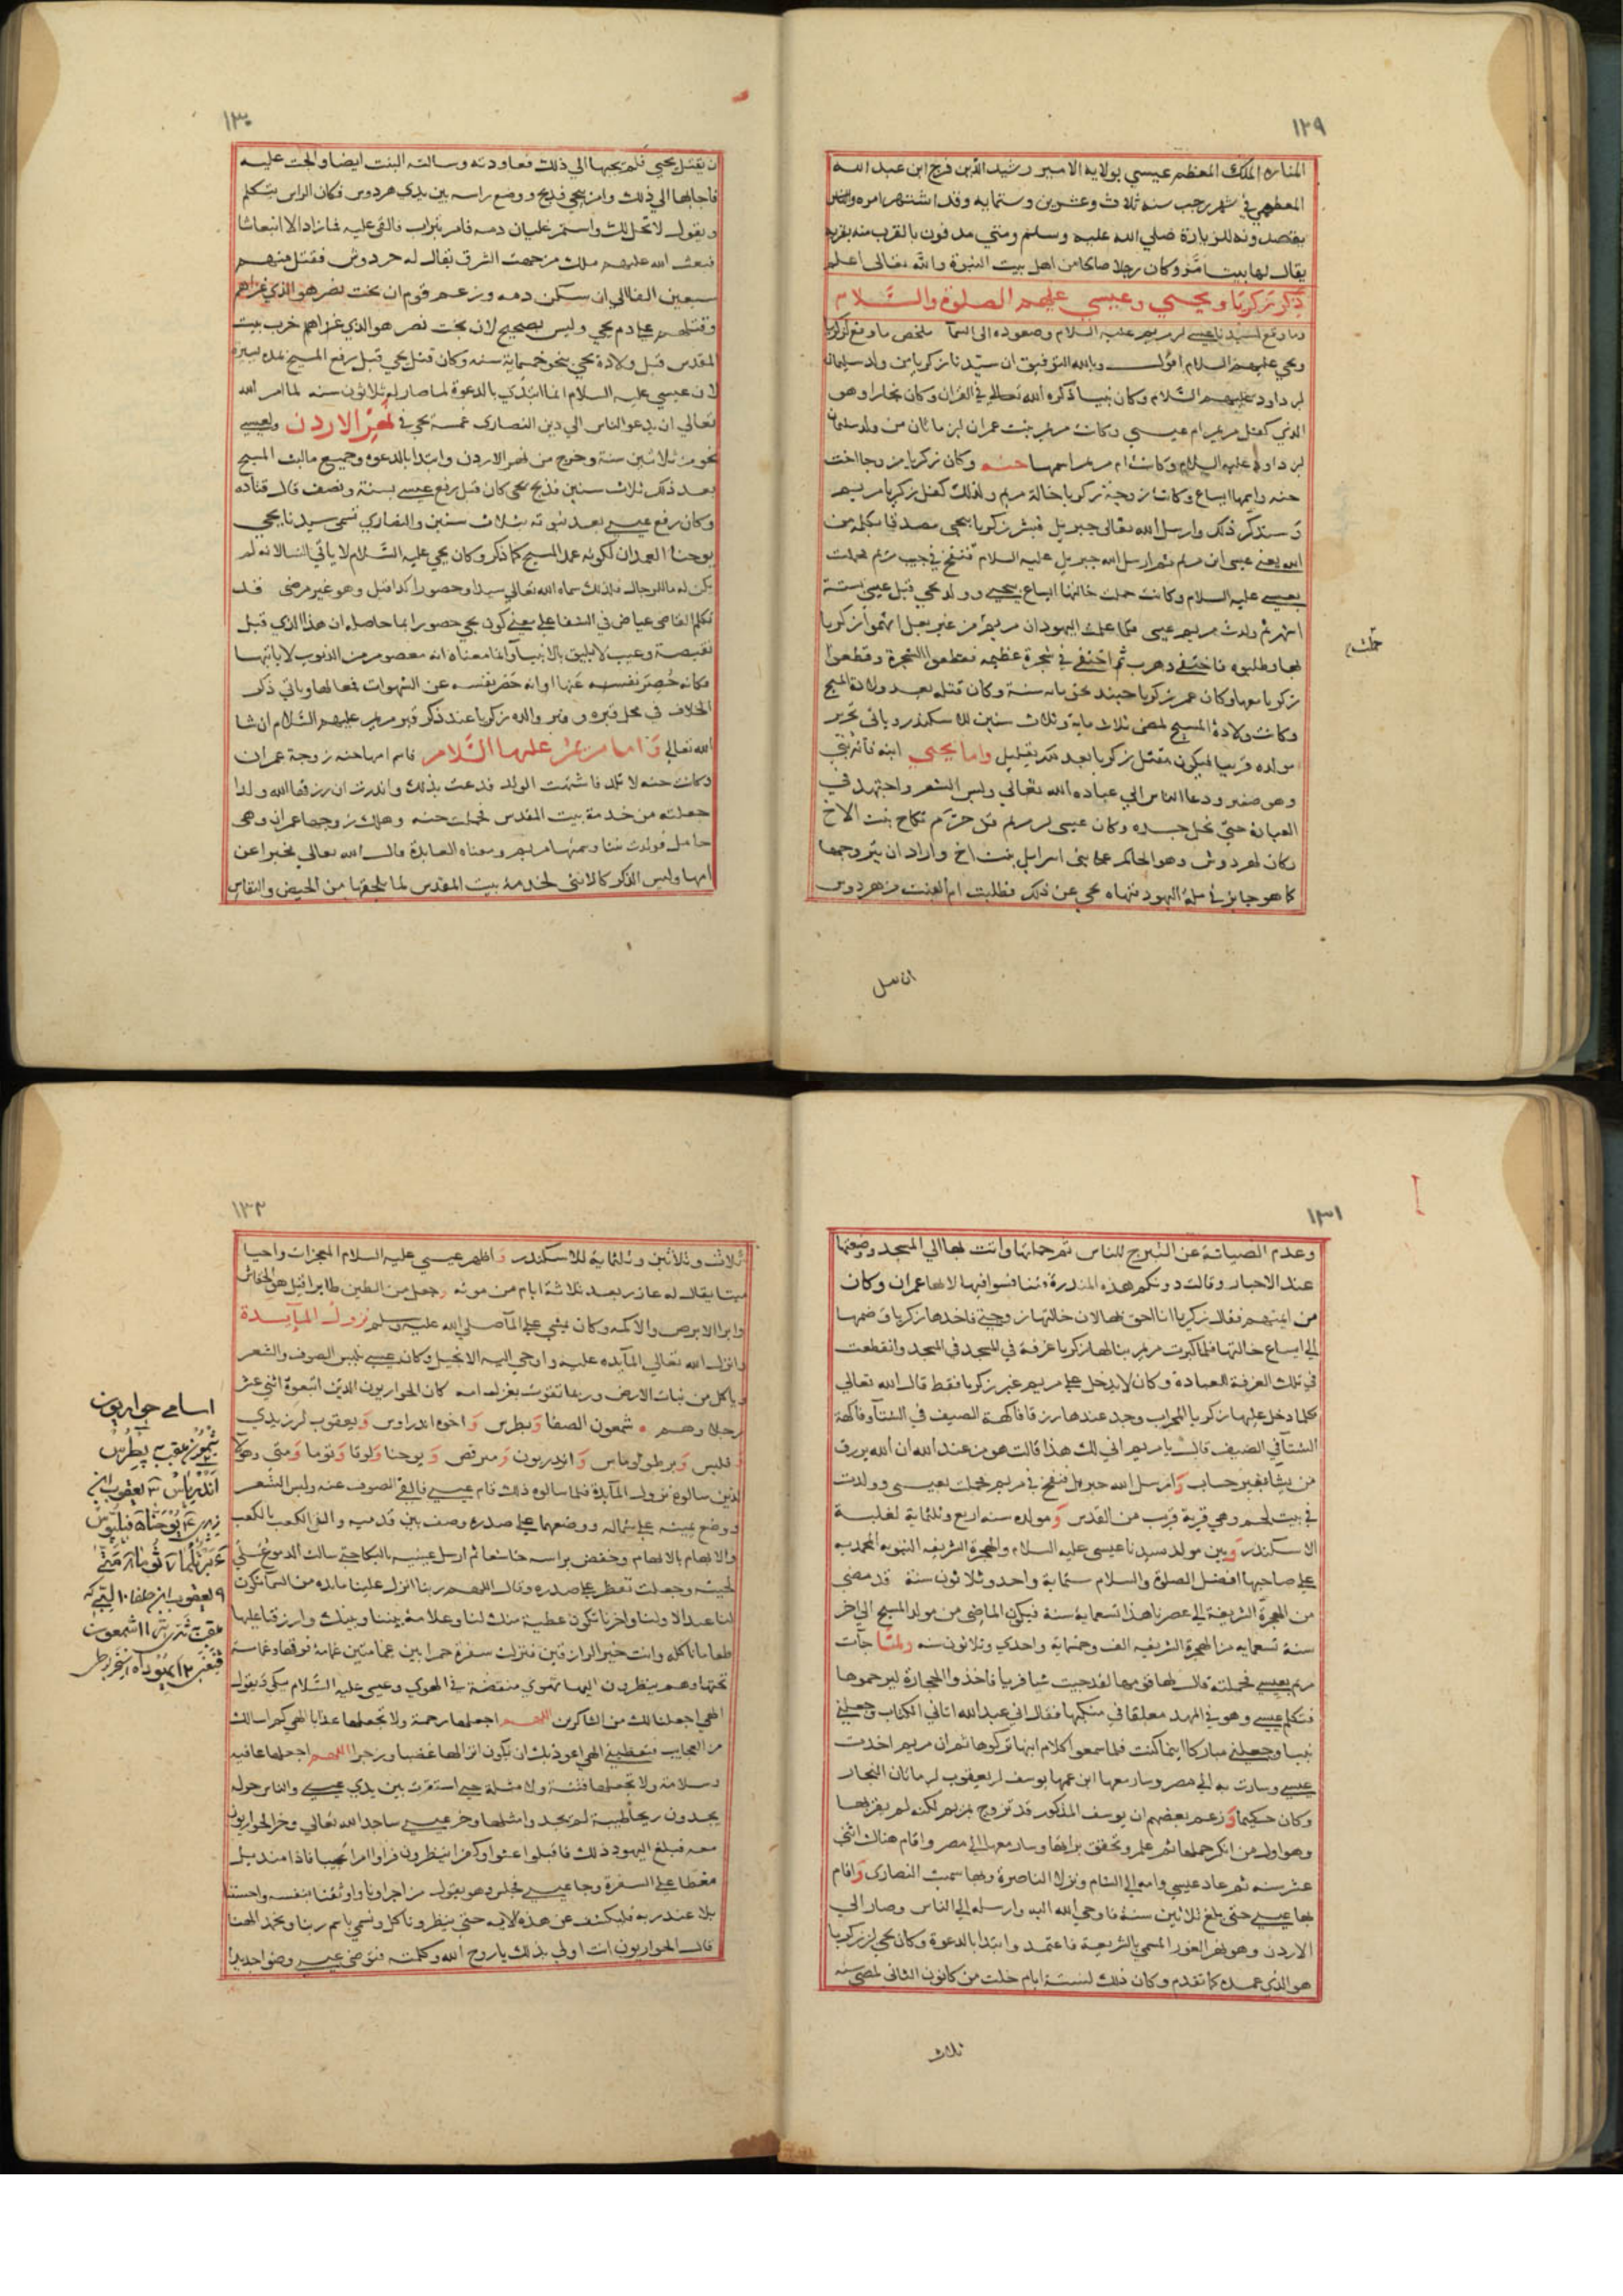 ١٢٩
المناره الملك المعظم عيسي بولاية الامير رشيد الدين فرج ابن عبد الله
المعظمي في شهر رجب سنه ثلاث وعشرين وستمايه وقد اشتهر امره والناس
يقصدونه للزيارة صلي الله عليه وسلم ومتي مدفون بالقرب منه بقرية
يقال لها بيت امر وكان رجلا صالحا من اهل بيت النبوة والله تعالى اعلم
ذكر زكريا ويحيي وعيسي عليهم الصلوة والسلام
وما وقع لسيدنا عيسي ابن مريم عليه السلام وصعوده الى السما ملخص ما وقع لزكريا
ويحي عليهم السلام اقول وبالله التوفيق ان سيدنا زكريا من ولد سليمان
ابن داود عليهم السلام وكان نبيا ذكره الله تعالى في القران وكان نجارا وهو
الذي كفل مريم ام عيسي وكانت مريم بنت عمران ابن ماثان من ولد سليمان
ابن داود عليه السلام وكانت ام مريم اسمها حنه وكان زكريا مزوجا اخت
حنه واسمها ايساع وكانت زوجة زكريا خالة مريم ولذلك كفل زكريا مريم
وسنذكر ذلك وارسل الله تعالى جبريل فبشر زكريا بيحيي مصدقا بكلمة من
الله يعني عيسى ابن مريم ثم ارسل الله جبريل عليه السلام فنفخ في جيب مريم فحملت
بعيسي عليه السلام وكانت حملت خالتها ايساع بيحيي وولد يحي قبل عيسى بستة
اشهر ثم ولدت مريم عيسى فلما علمت اليهود ان مريم من غير بعل اتهموا زكريا
بها وطلبوه فاختفي وهرب ثم اختفي في شجرة عظيمه فقطعوا الشجرة وقطعوا
زكريا معها وكان عمر زكريا حينئذ نحو مايه سنة وكان قتله بعد ولادة المسيح
وكانت ولادة المسيح لمضي ثلاث ماية وثلاث سنين للاسكندر وياتي تحرير
مولده قريبا فيكون مقتل زكريا بعد ذلك بقليل واما يحيي ابنه فانه نبي
وهو صغير ودعا الناس الي عباده الله تعالي ولبس الشعر واجتهد في
العبادة حتي نحل جسده وكان عيسي ابن مريم قد حرم نكاح بنت الاخ
وكان لهردوس وهو الحاكم علي بني اسرايل بنت اخ واراد ان يتزوجها
كما هو جايز في ملة اليهود فنهاه يحي عن ذلك فطلبت ام البنت من هردوس
ان يقتل
حملت
١٣٠
ان يقتل يحيي فلم يجبها الي ذلك فعاودته وسالته البنت ايضا والحت عليه
فاجابها الي ذلك وامر بيحي فذبح ووضع راسه بين يدي هردوس فكان الراس يتكلم
ويقول لا تحل لك واستمر غليان دمه فامر بتراب فالقي عليه فما زاد الا انبعاثا
فبعث الله عليهم ملك من جهت الشرق يقال له حردوش فقتل منهم
سبعين الفا الي ان سكن دمه وزعم قوم ان بخت نصر هو الذي غزاهم
وقتلهم علي دم يحي وليس بصحيح لان بخت نصر هو الذي غزاهم خرب بيت
المقدس قبل ولادة يحي بنحو خمسماية سنه وكان قتل يحي قبل رفع المسيح بمده يسيرة
لان عيسي عليه السلام انما ابتدي بالدعوة لما صار له ثلاثون سنه لما امر الله
تعالي ان يدعو الناس الي دين النصارى غمسه يحي في نهر الاردن ولعيسي
نحو من ثلاثين سنة وخرج من نهر الاردن وابتدا بالدعوه وجميع مالبث المسيح
بعد ذلك ثلاث سنين فذبح يحي كان قبل رفع عيسي بسنة ونصف قال قتاده
وكان رفع عيسي بعد نبوته بثلاث سنين والنصاري تسمي سيدنا يحيي
يوحنا العمدان لكونه عمد المسيح كما ذكر وكان يحي عليه السلام لا ياتي النسا لانه لم
يكن له ما للرجال فلذلك سماه الله تعالي سيدا وحصورا كذا قيل وهو غير مرضي فقد
تكلم القاضى عياض في الشفا علي معني كون يحي حصورا بما حاصله ان هذا الذي قيل
نقيصة وعيب لا يليق بالانبيا وانما معناه انه معصوم من الذنوب لا ياتيها
فكانه حصر نفسه عنها او انه حصر نفسه عن الشهوات فمعالها وياتي ذكر
الخلاف في محل قبره وقبر والده زكريا عند ذكر قبر مريم عليهم السلام ان شا
الله تعالي واما مريم عليها السلام فاسم امها حنه زوجة عمران
وكانت حنه لا تلد فاشتهت الولد فدعت بذلك ونذرت ان رزقها الله ولدا
جعلته من خدمة بيت المقدس فحملت حنه وهلك زوجها عمران وهي
حامل فولدت بنتا وسمتها مريم ومعناه العابدة قال الله تعالي مخبرا عن
امها وليس الذكر كالانثي لخدمة بيت المقدس لما يلحقها من الحيض والنفاس
١٣١
وعدم الصيانة عن التبرج للناس ثم حملتها واتت بها الي المسجد وضعتها
عند الاحبار وقالت دونكم هذه المنذرة فتنافسوا فيها لانها عمران وكان
من ايمتهم فقال زكريا انا احق بها لان خالتها زوجتي فاخذها زكريا وضمها
الي ايساع خالتها فلما كبرت مريم بنا لها زكريا غرفة في المسجد في المسجد وانقطعت
في تلك الغرفة للعبادة وكان لا يدخل علي مريم غير زكريا فقط قال الله تعالي
كلما دخل عليها زكريا المحراب وجد عندها رزقا فاكهة الصيف في الشتا وفاكهة
الشتا في الصيف قال يا مريم اني لك هذا قالت هو من عند الله ان الله يرزق
من يشا بغير حساب وارسل الله جبريل فنفخ في مريم فحملت بعيسي وولدت
في بيت لحم وهي قرية قرب من القدس ومولده سنه اربع وثلثماية لغلبة
الاسكندر وبين مولد سيدنا عيسى عليه السلام والهجرة الشريفه النبويه المحمديه
علي صاحبها افضل الصلوة والسلام ستماية واحد وثلاثون سنة قد مضي
من الهجرة الشريفة الي عصرنا هذا تسعماية سنة فيكون الماضي من مولد المسيح الي اخر
سنة تسعمايه من الهجرة الشريفه الف وخمسماية واحدي وثلاثون سنه ولما جات
مريم بعيسي تحمله قال لها قومها لقد جيت شيا فريا فاخذوا الحجارة ليرجموها
فتكلم عيسي وهو في المهد معلقا في منكبها فقال اني عبد الله اتاني الكتاب وجعلني
نبيا وجعلني مباركا اينما كنت فلما سمعوا كلام ابنها تركوها ثم ان مريم اخذت
عيسي وسارت به الي مصر وسار معها ابن عمها يوسف ابن يعقوب ابن ماثان النجار
وكان حكيما وزعم بعضهم ان يوسف المذكور قد تزوج بمريم لكنه لم يقربها
وهو اول من انكر حملها ثم علم وتحقق براتها وسار معها الي مصر واقام هناك اثني
عشر سنه ثم عاد عيسي وامه الي الشام ونزلا الناصرة وبها سميت النصارى واقام
بها عيسي حتى بلغ ثلاثين سنة فاوحي الله اليه وارسله الي الناس وصار الي
الاردن وهو نهر الغور المسمي بالشريعة فاعتمد وابتدا بالدعوة وكان يحي ابن زكريا
هو الذي عمده كما تقدم وكان ذلك لستة ايام خلت من كانون الثاني لمضي سنه
ثلاث
١٣٢
ثلاث وثلاثين وثلثماية للاسكندر واظهر عيسي عليه السلام المعجزات واحيا
ميتا يقال له عازر بعد ثلاثة ايام من موته وجعل من الطين طايرا قيل هو الخفاش
وابرا الابرص والاكمه وكان يمشي علي الما صلي الله عليه وسلم نزول المآيدة
وانزل الله تعالي المآيده عليه واوحي اليه الانجيل وكان عيسي يلبس الصوف والشعر
وياكل من نبات الارض وربما تقوت بغزل امه كان الحواريون الذين اتبعوه اثني عشر
رجلا وهم شمعون الصفا وبطرس واخوه اندراوس ويعقوب ابن زيدي
وفلبس وبرطولوماس واندريون ومرقص ويوحنا ولوقا وتوما ومتي وهولا
الذين سالوه نزول المآيدة فلما سالوه ذلك قام عيسي فالقي الصوف عنه ولبس الشعر
ووضع يمينه علي شماله ووضعهما علي صدره وصف بين قدميه والصق الكعب بالكعب
والابهام بالابهام وخفض براسه خاشعا ثم ارسل عينيه بالبكا حتي سالت الدموع علي
لحيته وجعلت تقطر علي صدره وقال اللهم ربنا انزل علينا مايده من السما تكون
لنا عيدا لاولنا واخرنا تكون عطية منك لنا وعلامة بيننا وبينك وارزقنا عليها
طعاما ناكله وانت خير الرازقين فنزلت سفرة حمرا بين غمامتين غمامة فوقها وغمامة
تحتها وهم ينظرون اليها تهوي منقضة في الهوي وعيسى عليه السلام يبكي ويقول
الهي اجعلنا لك من الشاكرين اللهم اجعلها رحمة ولا تجعلها عذابا الهي كم اسالك
من العجايب فتعطيني الهي اعوذ بك ان يكون انزالها غضبا ورجزا اللهم اجعلها عافيه
وسلامة ولا تجعلها فتنة ولا مثلة حتي استقرت بين يدي عيسي والناس حوله
يجدون ريحا طيبة لم يجدوا مثلها وخر عيسي ساجدا لله تعالي وخر الحواريون
معه فبلغ اليهود ذلك فاقبلوا عتوا وكفرا ينظرون فراوا امرا عجيبا فاذا منديل
مغطا علي السفرة وجا عيسي فجلس وهو يقول من اجرانا واوثقنا بنفسه واحسننا
بلا عند ربه فليكشف عن هذه الايه حتي ينظر وناكل ونسمي باسم ربنا ونحمد الهنا
قال الحواريون انت اولي بذلك يا روح الله وكلمته فتوضى عيسي وضوا جديدا
اسامے حواريون
پطرس
اندرياس ٣ يعقوب ابن
يوحنا ۵ فيلپوس
٩ يعقوب ابن حلفا ١٠
١١ شمعون